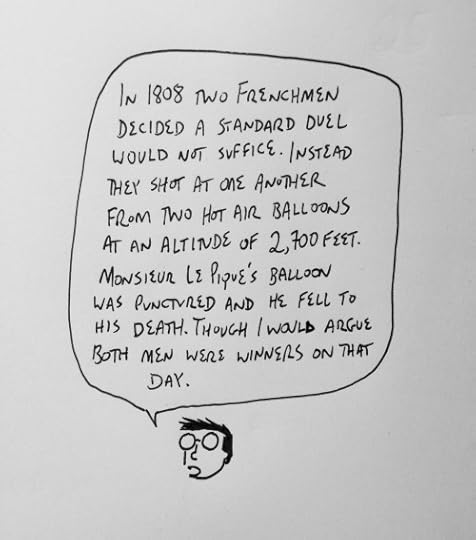 In 1808 two Frenchmen
decided a standard duel
would not suffice. Instead
they shot at one another
from two hot air balloons
at an altitude of 2,700 feet.
Monsieur Le Pique's balloon
was punctured and he fell to
his death. Though I would argue
both men were winners on that
day.